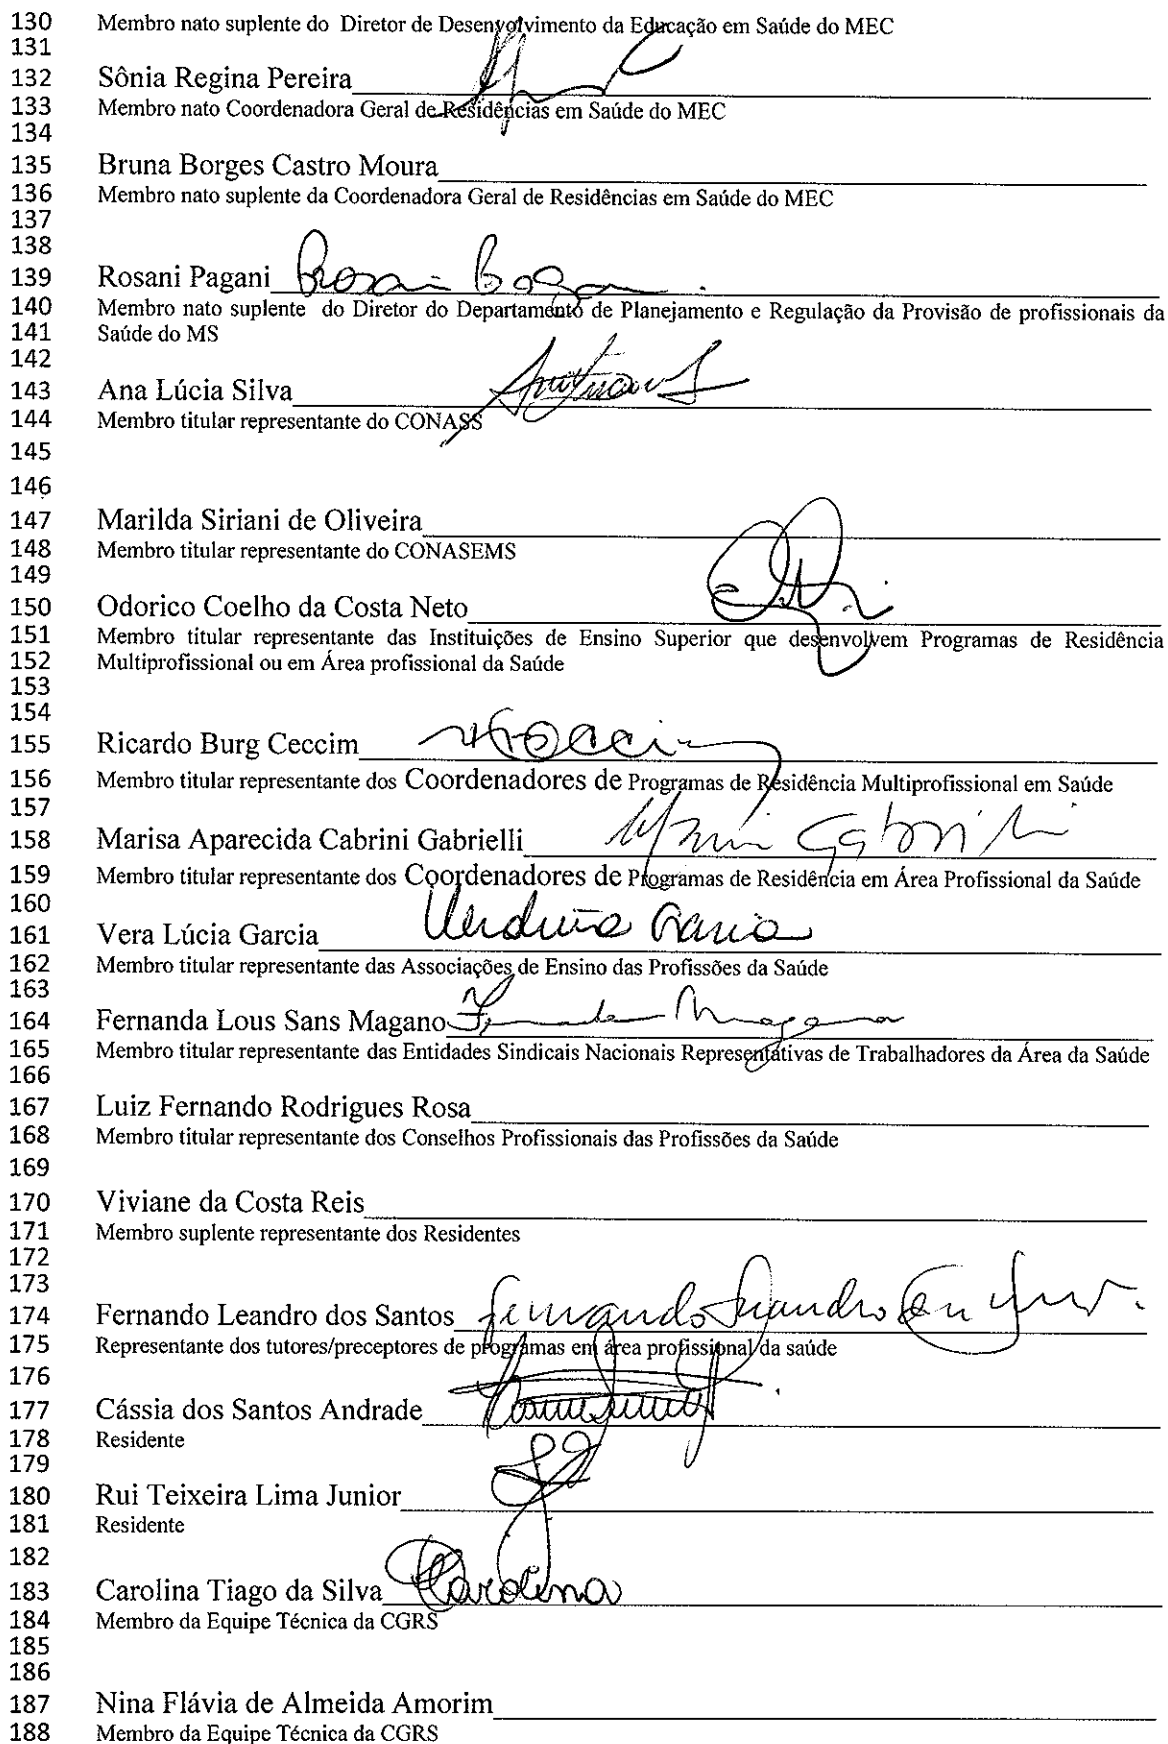 130 Membro nato suplente do Diretor de Desenvolvimento da Educação em Saúde do MEC
131
132 Sônia Regina Pereira
133 Membro nato Coordenadora Geral de Residências em Saúde do MEC
134
135 Bruna Borges Castro Moura
136 Membro nato suplente da Coordenadora Geral de Residências em Saúde do MEC
137
138
139 Rosani Pagani
140 Membro nato suplente do Diretor do Departamento de Planejamento e Regulação da Provisão de profissionais da
141 Saúde do MS
142
143 Ana Lúcia Silva
144 Membro titular representante do CONASS
145
146
147 Marilda Siriani de Oliveira
148 Membro titular representante do CONASEMS
149
150 Odorico Coelho da Costa Neto
151 Membro titular representante das Instituições de Ensino Superior que desenvolvem Programas de Residência
152 Multiprofissional ou em Área profissional da Saúde
153
154
155 Ricardo Burg Ceccim
156 Membro titular representante dos Coordenadores de Programas de Residência Multiprofissional em Saúde
157
158 Marisa Aparecida Cabrini Gabrielli
159 Membro titular representante dos Coordenadores de Programas de Residência em Área Profissional da Saúde
160
161 Vera Lúcia Garcia
162 Membro titular representante das Associações de Ensino das Profissões da Saúde
163
164 Fernanda Lous Sans Magano Fernanda Magano
165 Membro titular representante das Entidades Sindicais Nacionais Representativas de Trabalhadores da Área da Saúde
166
167 Luiz Fernando Rodrigues Rosa
168 Membro titular representante dos Conselhos Profissionais das Profissões da Saúde
169
170 Viviane da Costa Reis
171 Membro suplente representante dos Residentes
172
173
174 Fernando Leandro dos Santos Fernando Leandro
175 Representante dos tutores/preceptores de programas em área profissional da saúde
176
177 Cássia dos Santos Andrade
178 Residente
179
180 Rui Teixeira Lima Junior
181 Residente
182
183 Carolina Tiago da Silva Carolina
184 Membro da Equipe Técnica da CGRS
185
186
187 Nina Flávia de Almeida Amorim
188 Membro da Equipe Técnica da CGRS